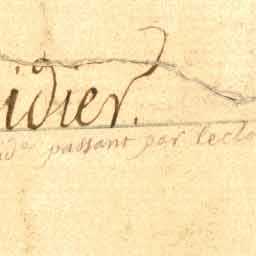 idier.
id.e passant par leclo